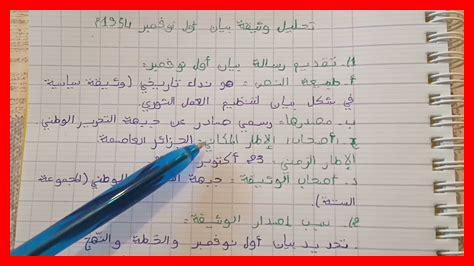 تحليل وثيقة بيان أول نوفمبر 1954م
1). تقديم رسالة بيان أول نوفمبر:
أ. طبيعة النص: هو نداء تاريخي (وثيقة سياسية
في شكل بيان لتنظيم العمل الثوري
ب. مصدرها: رسمي صادر عن جبهة التحرير الوطني.
الإطار المكاني: الجزائر العاصمة
الإطار الزمني: 23 أكتوبر
د. أصحاب الوثيقة: جبهة الوطني (المجموعة
الستة).
2). سبب إصدار الوثيقة:
تحديد بيان أول نوفمبر والخطة والنهج